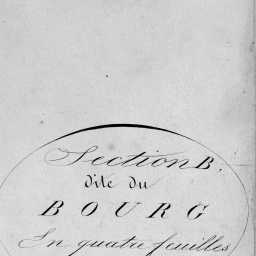 Section B.
dite du
BOURG
En quatre feuilles